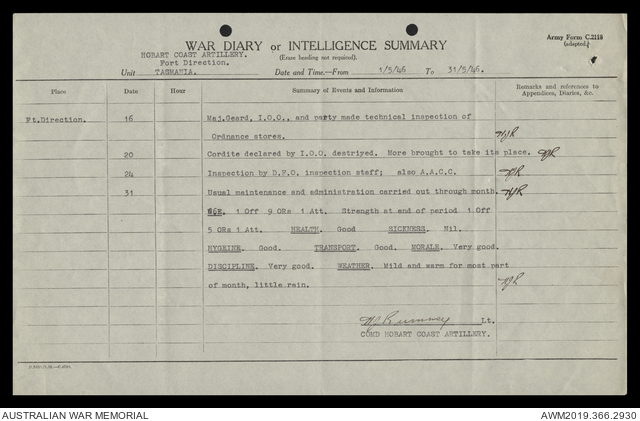 Army Form C.2118
(adapted.)
WAR DIARY or INTELLIGENCE SUMMARY
(Erase heading not required).
HOBART COAST ARTILLERY.
Fort Direction.
Unit TASMANIA. Date and Time.—From 1/5/46 To 31/5/46.
Place Date Hour Summary of Events and Information Remarks and references to Appendices, Diaries, &c.
Ft.Direction. 16 Maj.Geard, I.O.O., and party made technical inspection of
Ordnance stores. HJR
20 Cordite declared by I.O.O. destriyed. More brought to take its place. HJR
24 Inspection by D.F.O. inspection staff; also A.A.C.C. HJR
31 Usual maintenance and administration carried out through month. HJR
1 Off 9 ORs 1 Att. Strength at end of period 1 Off
5 ORs 1 Att. HEALTH. Good SICKNESS. Nil.
HYGEINE. Good. TRANSPORT. Good. MORALE. Very good.
DISCIPLINE. Very good. WEATHER. Mild and warm for most part
of month, little rain. HJR
HJ Rumney Lt.
COMD HOBART COAST ARTILLERY.
AUSTRALIAN WAR MEMORIAL
AWM2019.366.2930